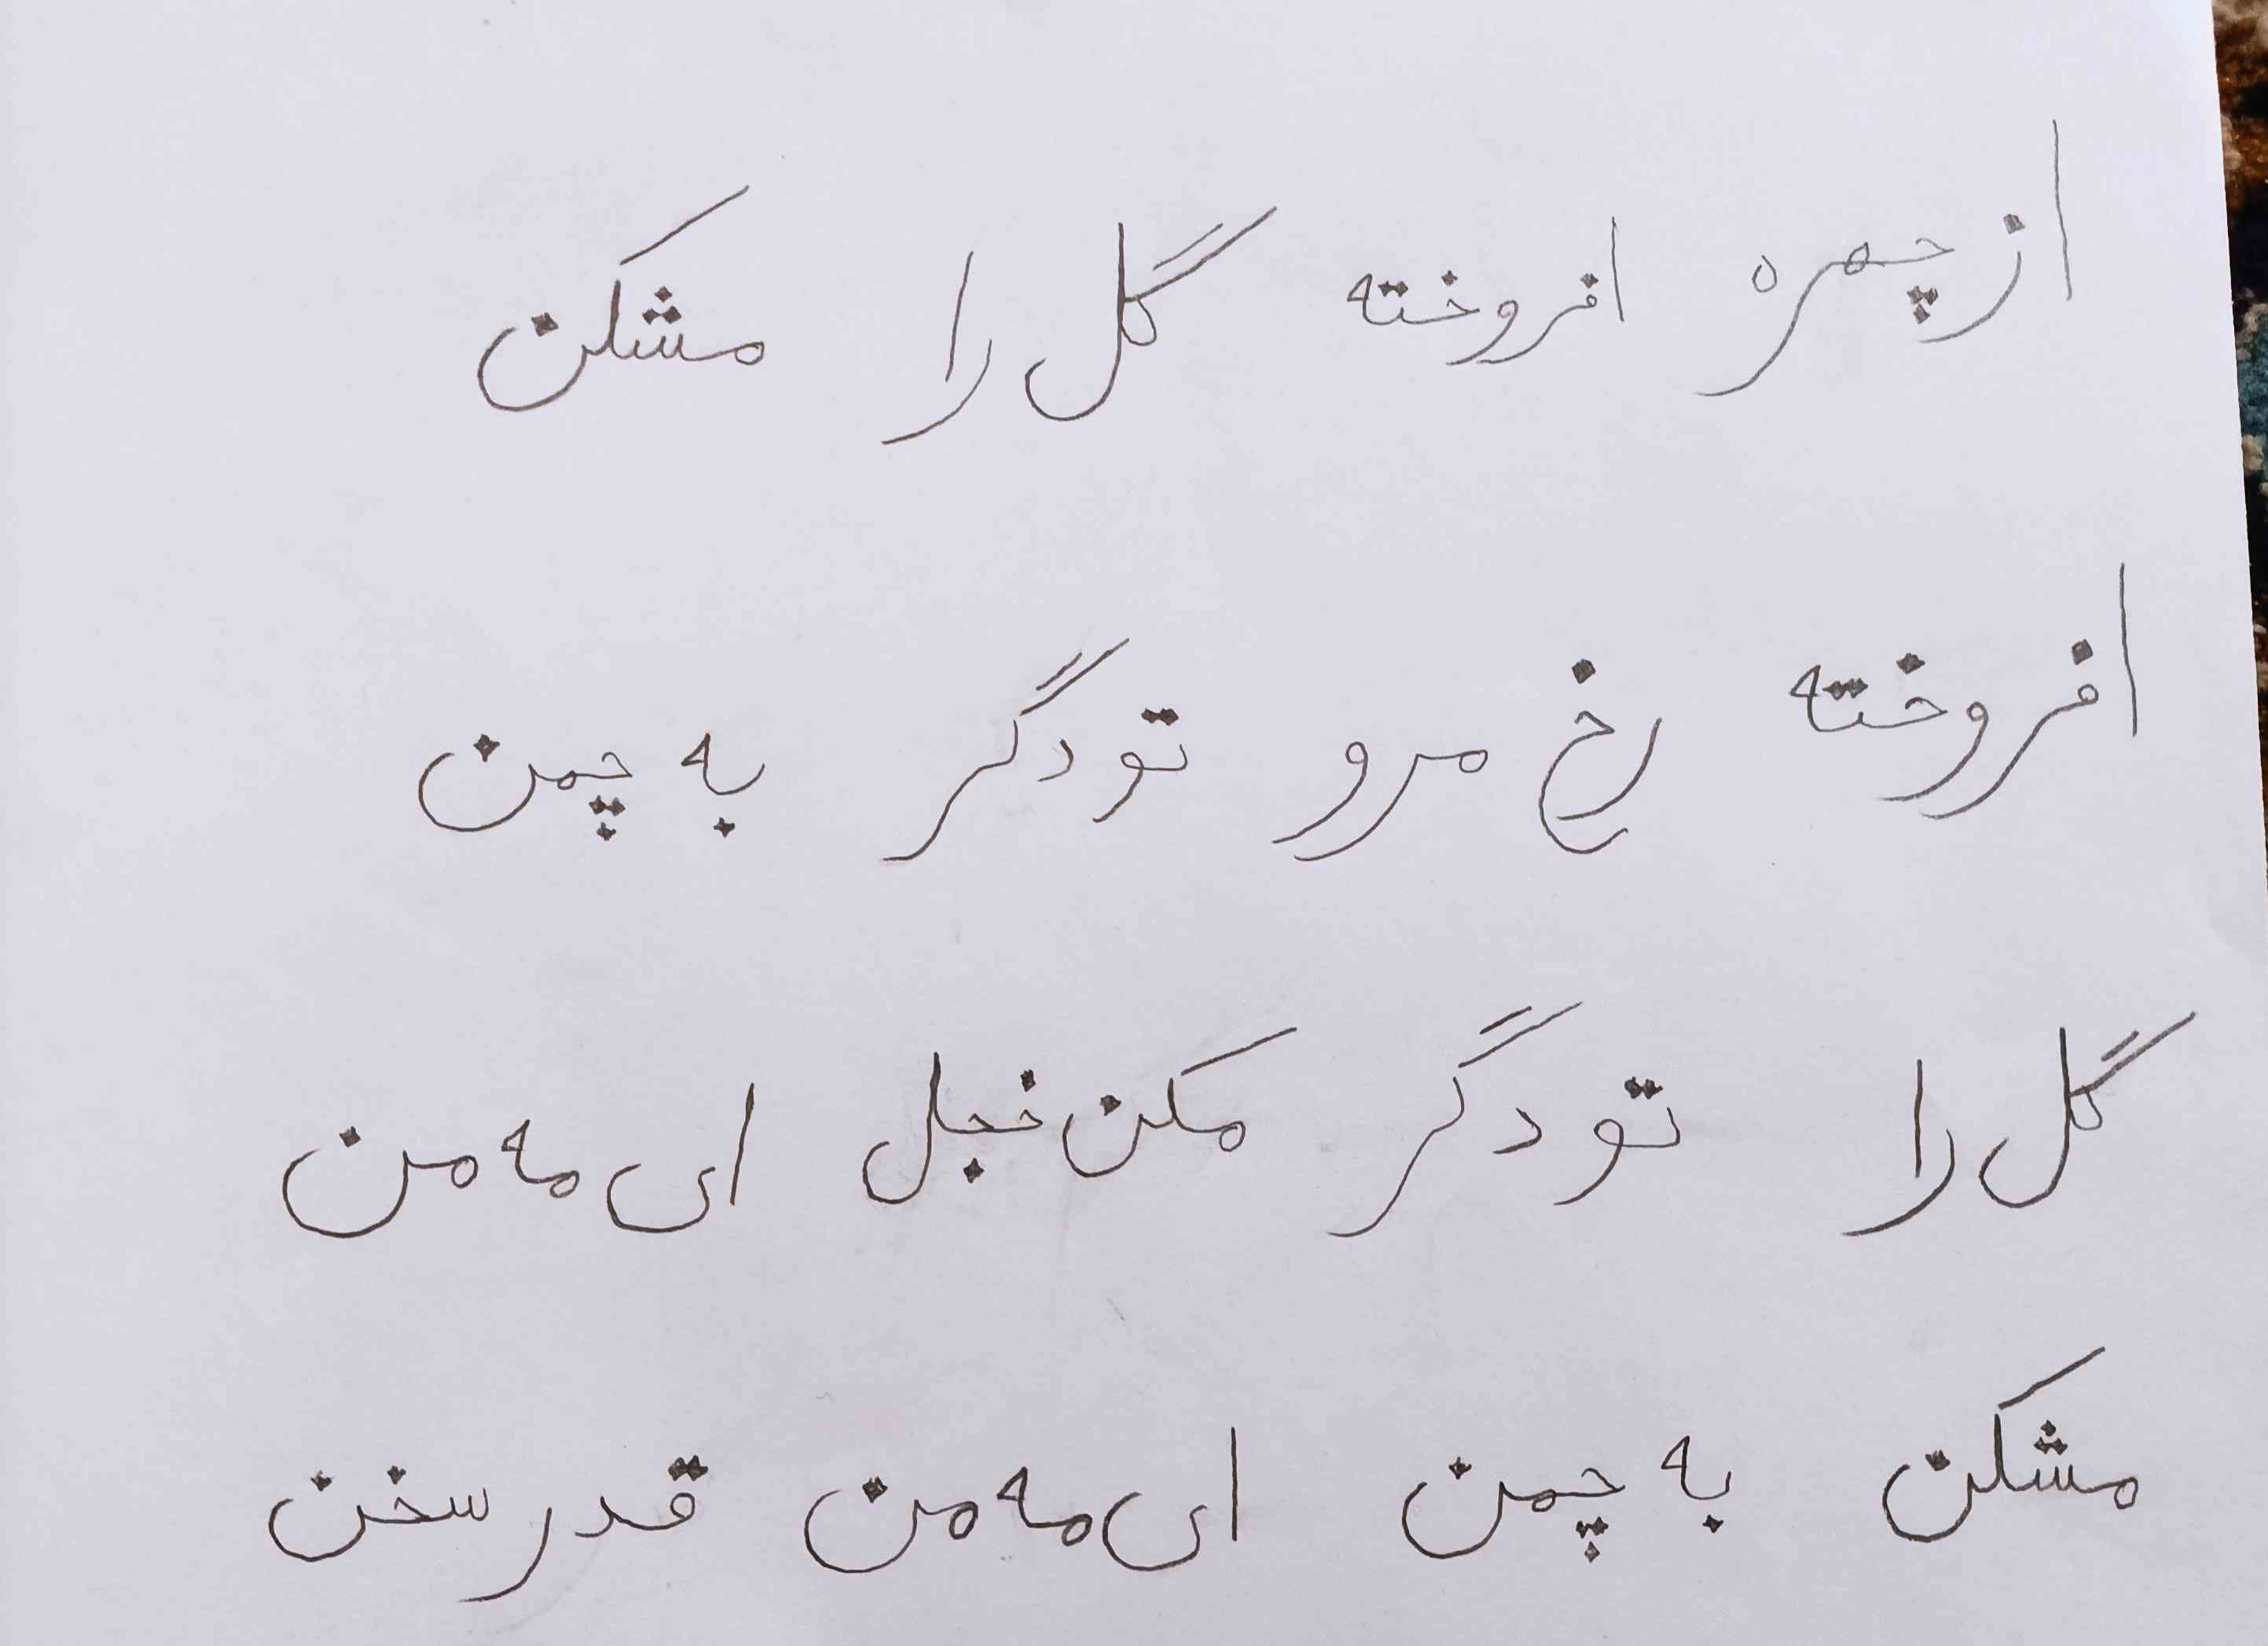 از چهره افروخته گل را مشکن
افروخته رخ مرو تو دگر به چمن
گل را تو دگر مکن خجل ای مه من
مشکن به چمن ای مه من قدر سخن